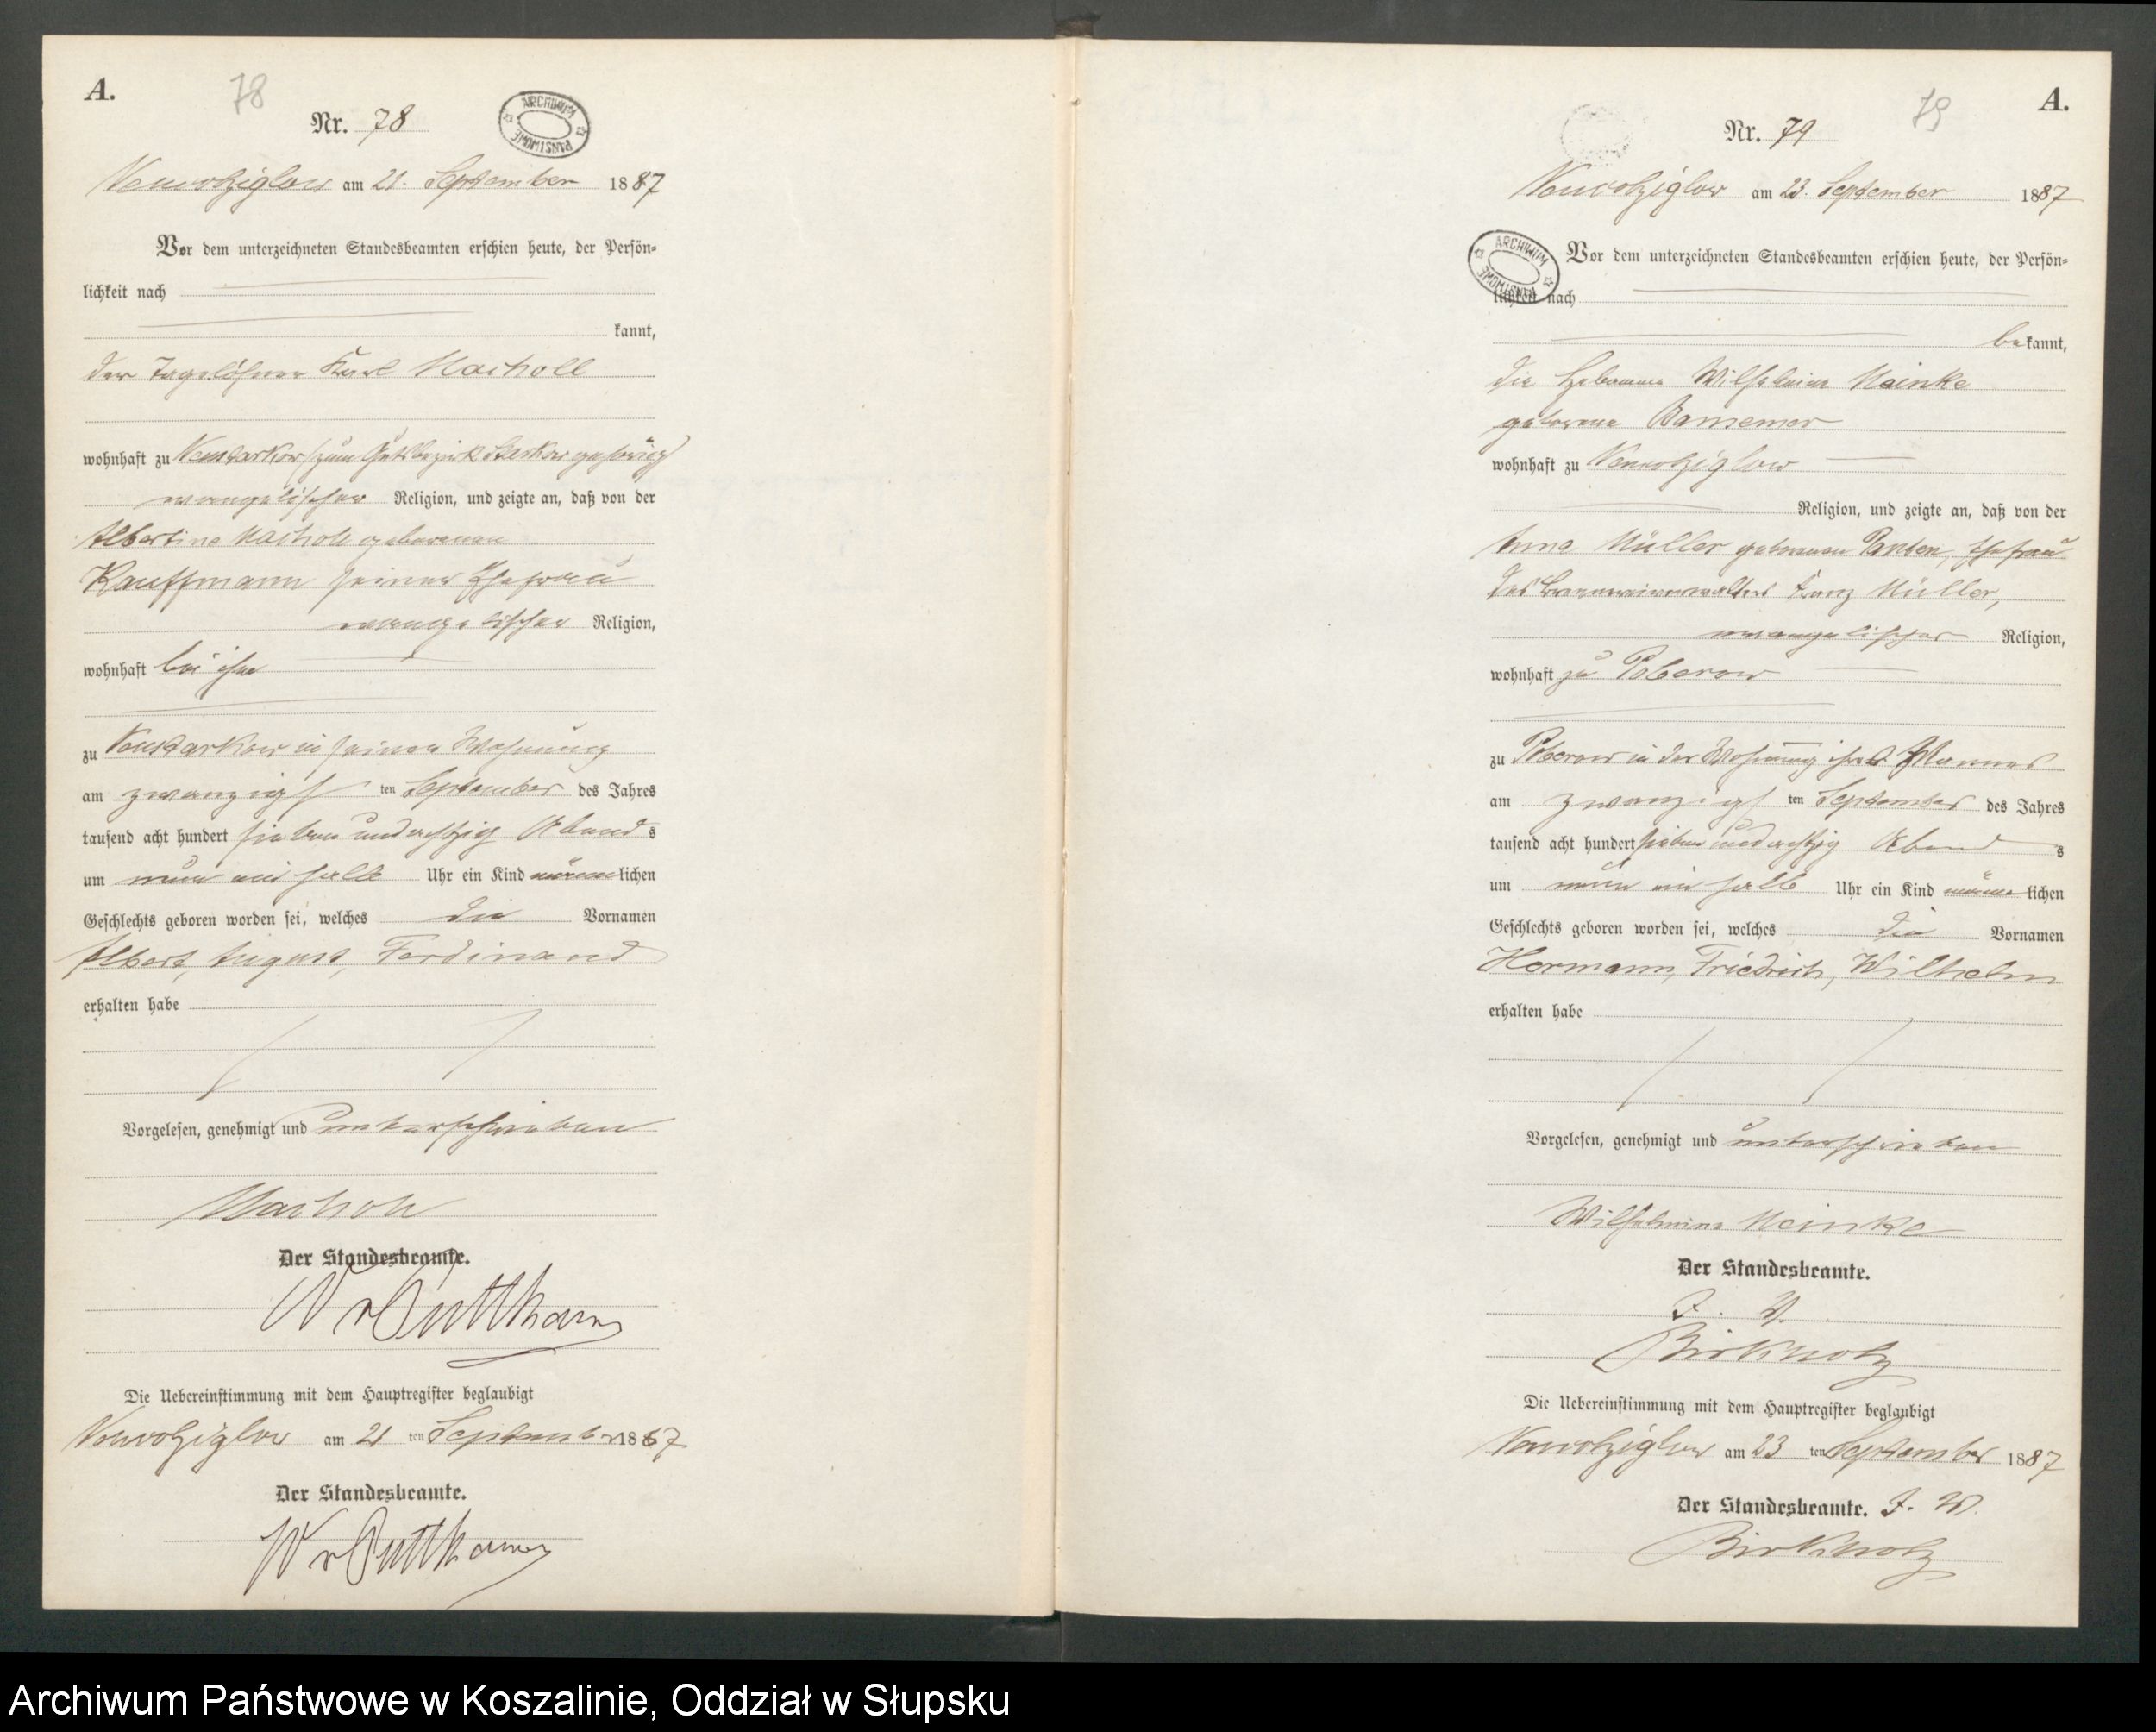 A.
78
Nr. 78
ARCHIWUM PAŃSTWOWE
Neuwolziglow am 21. September 1887
Vor dem unterzeichneten Standesbeamten erschien heute, der Persön=
lichkeit nach
kannt,
der Tagelöhner Karl
wohnhaft zu (zum Gutsbezirk gehörig)
evangelischer Religion, und zeigte an, daß von der
Albertine geborenen
Kauffmann seiner Ehefrau
evangelischer Religion,
wohnhaft bei ihm
zu in seiner Wohnung
am zwanzigsten September des Jahres
tausend acht hundert sieben und achtzig Abends
um neun ein halb Uhr ein Kind männlichen
Geschlechts geboren worden sei, welches die Vornamen
Albert, August, Ferdinand
erhalten habe
Vorgelesen, genehmigt und unterschrieben
Der Standesbeamte.
W v Puttkamer
Die Uebereinstimmung mit dem Hauptregister beglaubigt
Neuwolziglow am 21 ten September 1887
Der Standesbeamte.
W v Puttkamer
A.
79
Nr. 79
Neuwolziglow am 23. September 1887
ARCHIWUM PAŃSTWOWE
Vor dem unterzeichneten Standesbeamten erschien heute, der Persön=
lichkeit nach
bekannt,
die Hebamme Wilhelmine Meinke
geborene Bansemer
wohnhaft zu Neuwolziglow
Religion, und zeigte an, daß von der
Anna Müller geborenen Panten, Ehefrau
des Brennereiverwalters Franz Müller,
evangelischer Religion,
wohnhaft zu Poberow
zu Poberow in der Wohnung ihres Mannes
am zwanzigsten September des Jahres
tausend acht hundert sieben und achtzig Abends
um neun ein halb Uhr ein Kind männlichen
Geschlechts geboren worden sei, welches die Vornamen
Hermann, Friedrich, Wilhelm
erhalten habe
Vorgelesen, genehmigt und unterschrieben
Wilhelmine Meinke
Der Standesbeamte.
J. V.
Birkholz
Die Uebereinstimmung mit dem Hauptregister beglaubigt
Neuwolziglow am 23 ten September 1887
Der Standesbeamte. J. V.
Birkholz
Archiwum Państwowe w Koszalinie, Oddział w Słupsku